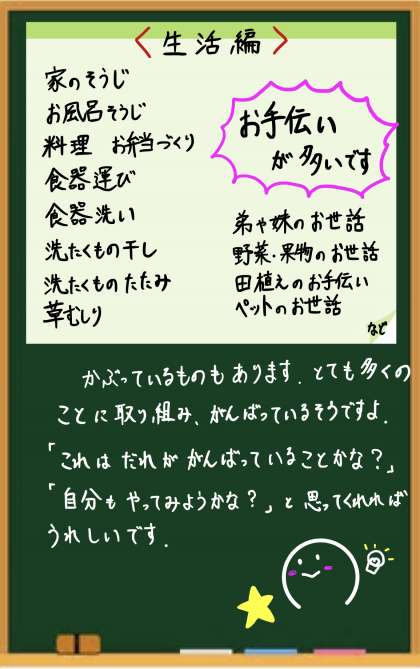 〈生活編〉
家のそうじ
お風呂そうじ
料理 お弁当づくり
食器運び
食器洗い
洗たくもの干し
洗たくものたたみ
草むしり
お手伝い
が多いです
弟や妹のお世話
野菜・果物のお世話
田植えのお手伝い
ペットのお世話
など
かぶっているものもあります. とても多くの
ことに取り組み、がんばっているそうですよ.
「これは だれが がんばっていることかな?」
「自分も やってみようかな?」と 思ってくれれば
うれしいです.